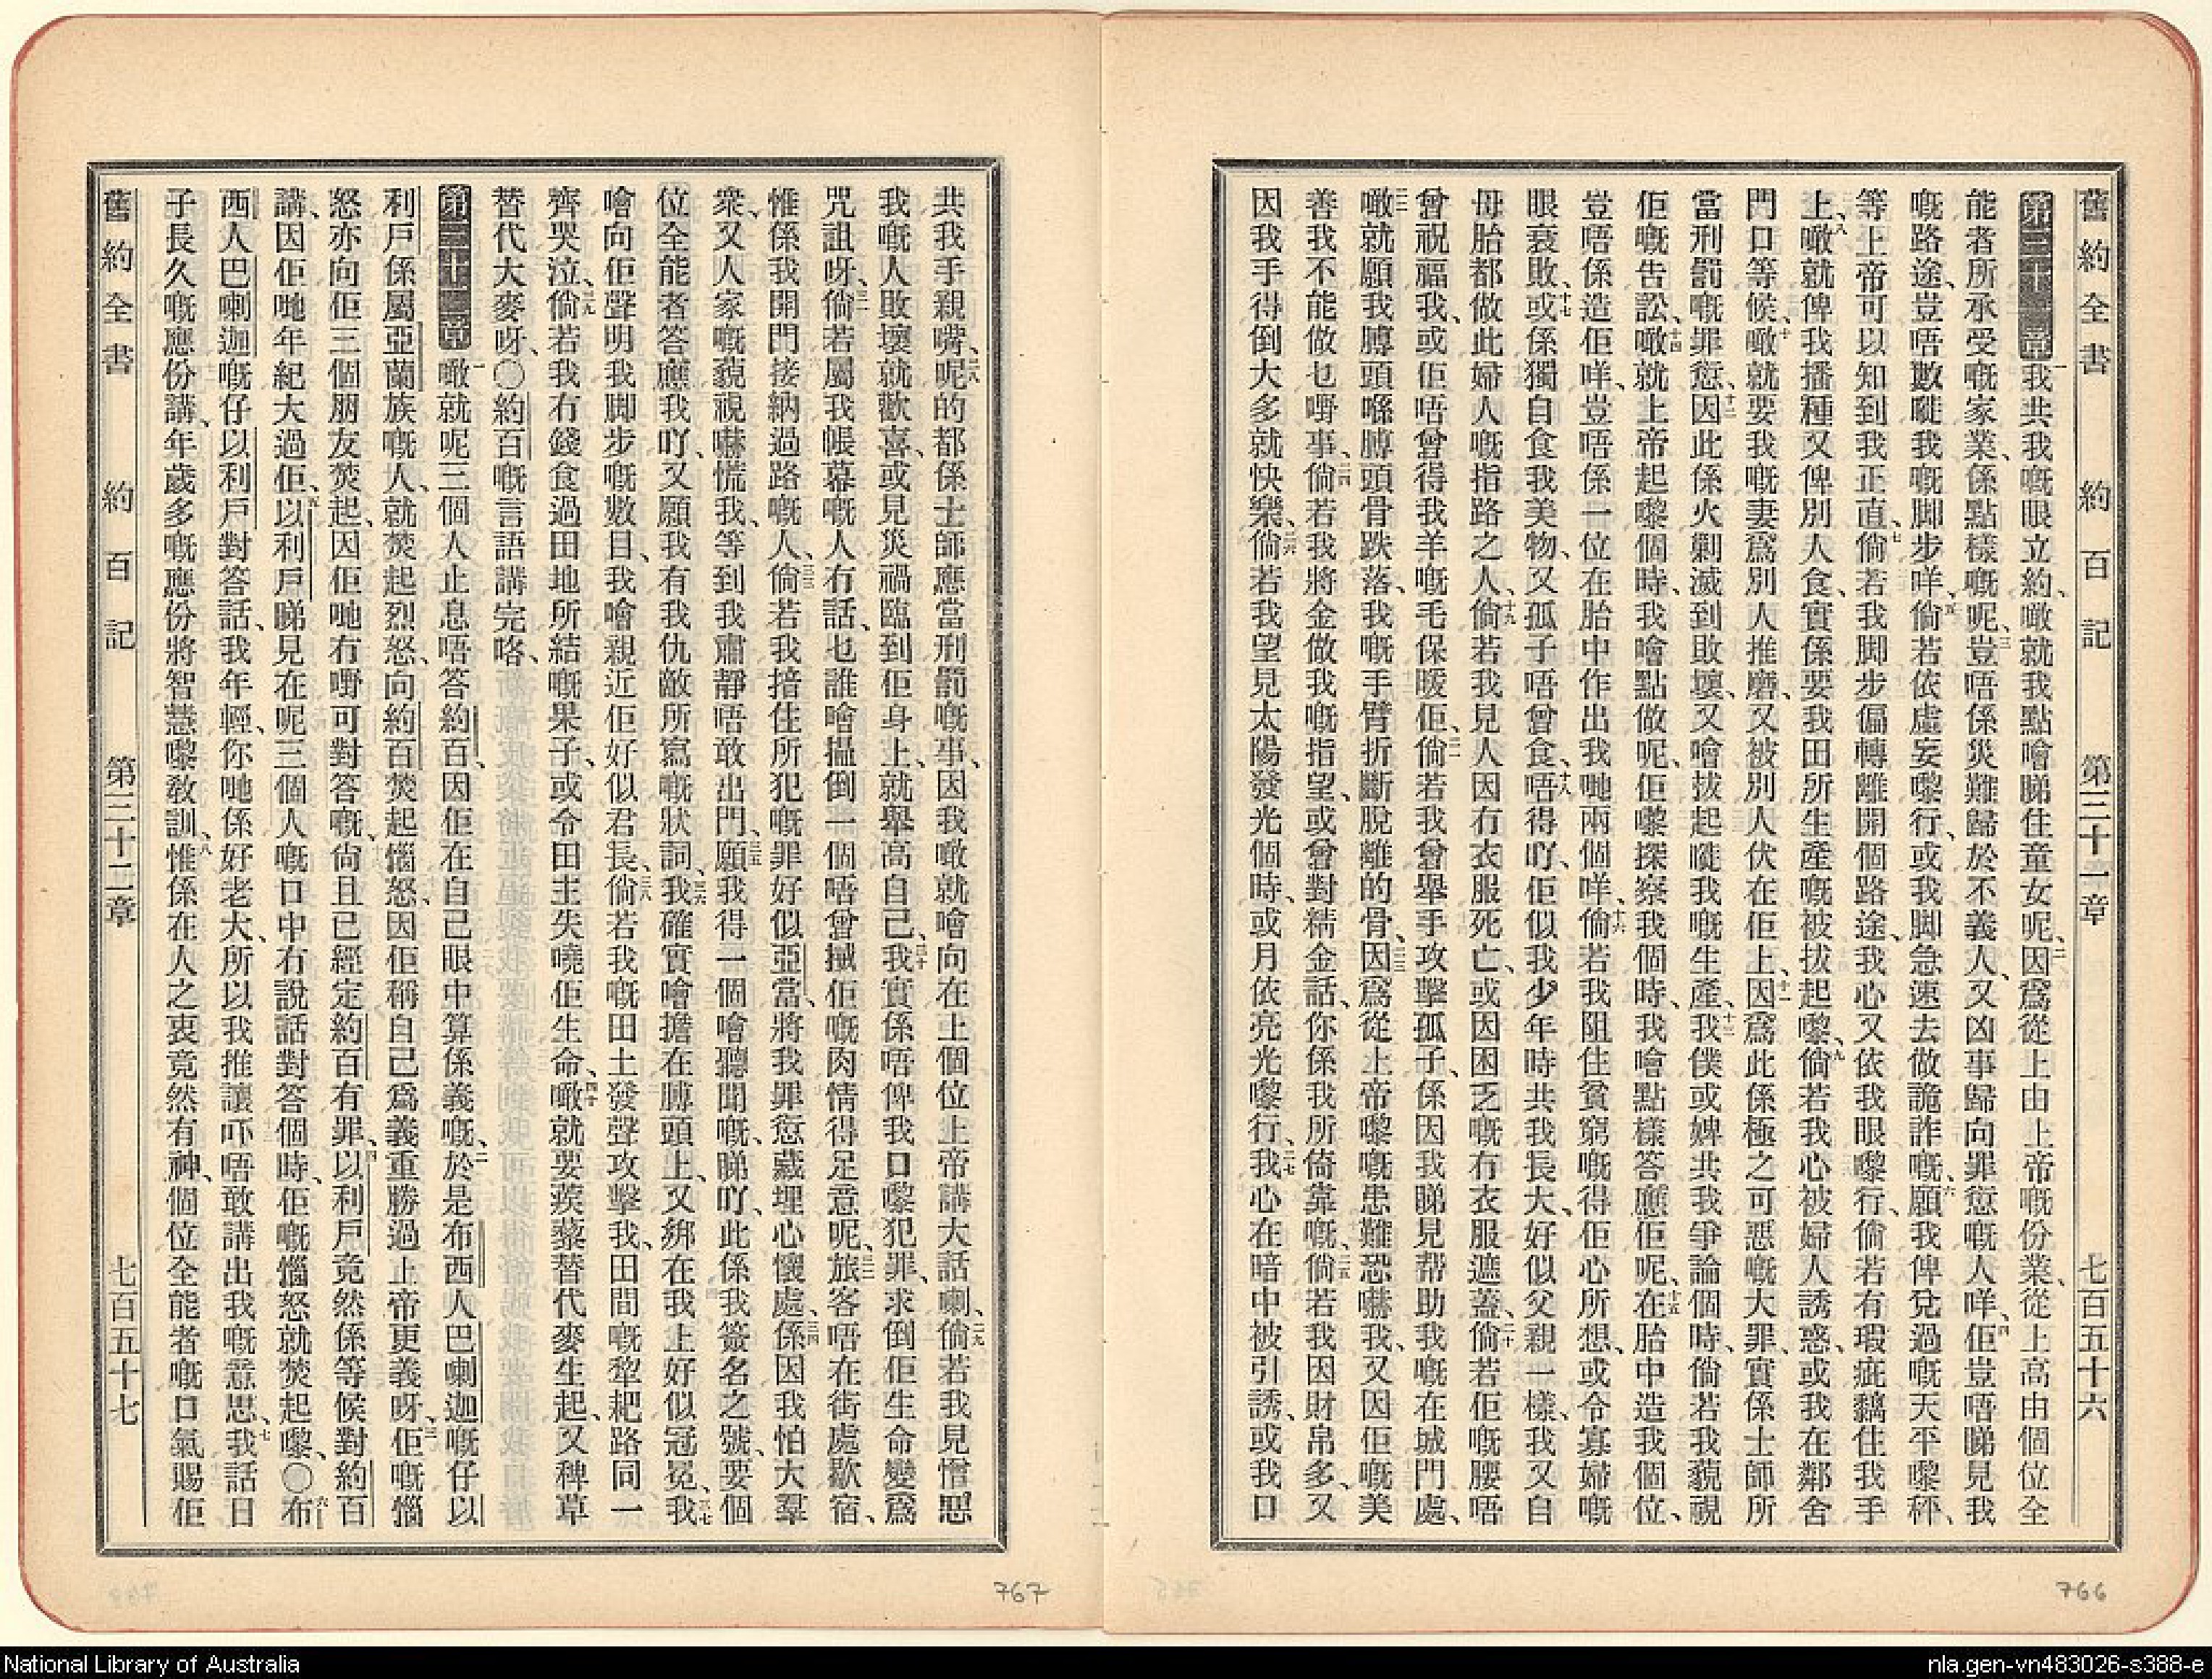 舊約全書 約百記 第三十一章 七百五十六
第三十一章 一我共我嘅眼立約、噉就我點噲睇住童女呢、二因爲從上由上帝嘅份業、從上高由個位全
能者所承受嘅家業、係點樣嘅呢、三豈唔係災難歸於不義人、又凶事歸向罪愆嘅人咩、四佢豈唔睇見我
嘅路途、豈唔數嘥我嘅脚步咩、五倘若依虛妄嚟行、或我脚急速去做詭詐嘅、六願我俾兌過嘅天平嚟秤、
等上帝可以知到我正直、七倘若我脚步偏轉離開個路途、我心又依我眼嚟行、倘若有瑕疵黐住我手
上、八噉就俾我播種又俾別人食、實係要我田所生產嘅被拔起嚟、九倘若我心被婦人誘惑、或我在鄰舍
門口等候、十噉就要我嘅妻爲別人推磨、又被別人伏在佢上、十一因爲此係極之可惡嘅大罪、實係士師所
當刑罰嘅罪愆、十二因此係火剿滅到敗壞、又噲拔起嘥我嘅生產、十三我僕或婢共我爭論個時、倘若我藐視
佢嘅告訟、十四噉就上帝起嚟個時、我噲點做呢、佢嚟探察我個時、我噲點樣答應佢呢、十五在胎中造我個位、
豈唔係造佢咩、豈唔係一位在胎中作出我哋兩個咩、十六倘若我阻住貧窮嘅得佢心所想、或令寡婦嘅
眼衰敗、十七或係獨自食我美物、又孤子唔曾食、十八唔得吖、佢似我少年時共我長大、好似父親一樣、我又自
母胎都做此婦人嘅指路之人、十九倘若我見人因冇衣服死亡、或因困乏嘅冇衣服遮蓋、二十倘若佢嘅腰唔
曾祝福我、或佢唔曾得我羊嘅毛保暖佢、二一倘若我曾舉手攻擊孤子、係因我睇見帮助我嘅在城門處、
二二噉就願我膊頭喺膊頭骨跌落、我嘅手臂折斷脫離的骨、二三因爲從上帝嚟嘅患難恐嚇我、又因佢嘅美
善我不能做乜嘢事、二四倘若我將金做我嘅指望、或曾對精金話、你係我所倚靠嘅、二五倘若我因財帛多、又
因我手得倒大多就快樂、二六倘若我望見太陽發光個時、或月依亮光嚟行、二七我心在暗中被引誘、或我口
766
共我手親嘴、二八呢的都係士師應當刑罰嘅事、因我噉就噲向在上個位上帝講大話喇、二九倘若我見憎惡
我嘅人敗壞就歡喜、或見災禍臨到佢身上、就舉高自己、三十我實係唔俾我口嚟犯罪、求倒佢生命變爲
咒詛呀、三一倘若屬我帳幕嘅人冇話、乜誰噲搵倒一個唔曾摵佢嘅肉情得足意呢、三二旅客唔在街處歇宿、
惟係我開門接納過路嘅人、三三倘若我揞住所犯嘅罪好似亞當、將我罪愆藏埋心懷處、三四係因我怕大羣
衆、又人家嘅藐視嚇慌我、等到我肅靜唔敢出門、三五願我得一個噲聽聞嘅、睇吖、此係我簽名之號、要個
位全能者答應我吖、又願我有我仇敵所寫嘅狀詞、三六我確實噲擔在膊頭上、又綁在我上好似冠冕、三七我
噲向佢聲明我脚步嘅數目、我噲親近佢好似君長、三八倘若我嘅田土發聲攻擊我、田間嘅犂耙路同一
齊哭泣、三九倘若我冇錢食過田地所結嘅果子、或令田主失嘵佢生命、四十噉就要蒺藜替代麥生起、又稗草
替代大麥呀、〇約百嘅言語講完咯、
第三十二章 一噉就呢三個人止息唔答約百、因佢在自己眼中算係義嘅、二於是布西人巴喇迦嘅仔以
利戶、係屬亞蘭族嘅人、就焚起烈怒、向約百焚起惱怒、因佢稱自己爲義重勝過上帝更義呀、三佢嘅惱
怒亦向佢三個朋友焚起、因佢哋冇嘢可對答嘅、尙且已經定約百有罪、四以利戶竟然係等候對約百
講、因佢哋年紀大過佢、五以利戶睇見在呢三個人嘅口中冇說話對答個時、佢嘅惱怒就焚起嚟、〇六布
西人巴喇迦嘅仔以利戶對答話、我年輕、你哋係好老大、所以我推讓吓唔敢講出我嘅意思、七我話日
子長久嘅應份講、年歲多嘅應份將智慧嚟敎訓、八惟係在人之衷竟然有神、個位全能者嘅口氣賜佢
舊約全書 約百記 第三十二章 七百五十七
767
National Library of Australia
nla.gen-vn483026-s388-e